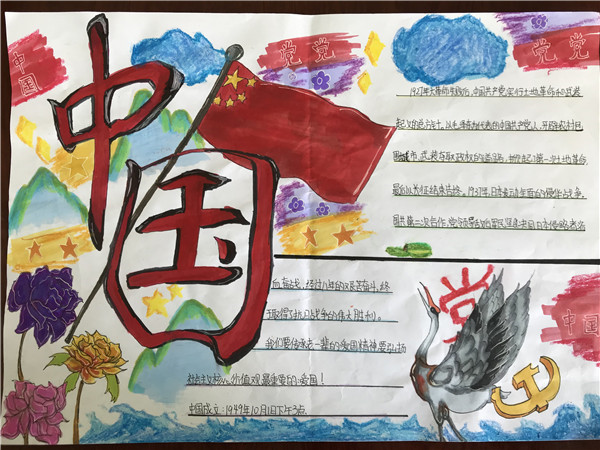 中国
中国
党党
党党
1927年大革命失败后,中国共产党实行土地革命和武装
起义的总方针。以毛泽东为代表的中国共产党人,开辟农村
围城市、武装夺取政权的道路。并领导了第一次土地革命,
最后以长征结束告终。1937年,日本发动全面的侵华战争,
国共第二次合作,党领导 军民坚决 日本侵略者
奋战,经过八年的艰苦奋斗,终
于取得了抗日战争的伟大胜利。
我们要传承老一辈的爱国精神要弘扬
社会主义核心价值观最重要的爱国!
中国成立:1949年10月1日下午3点
党
中国